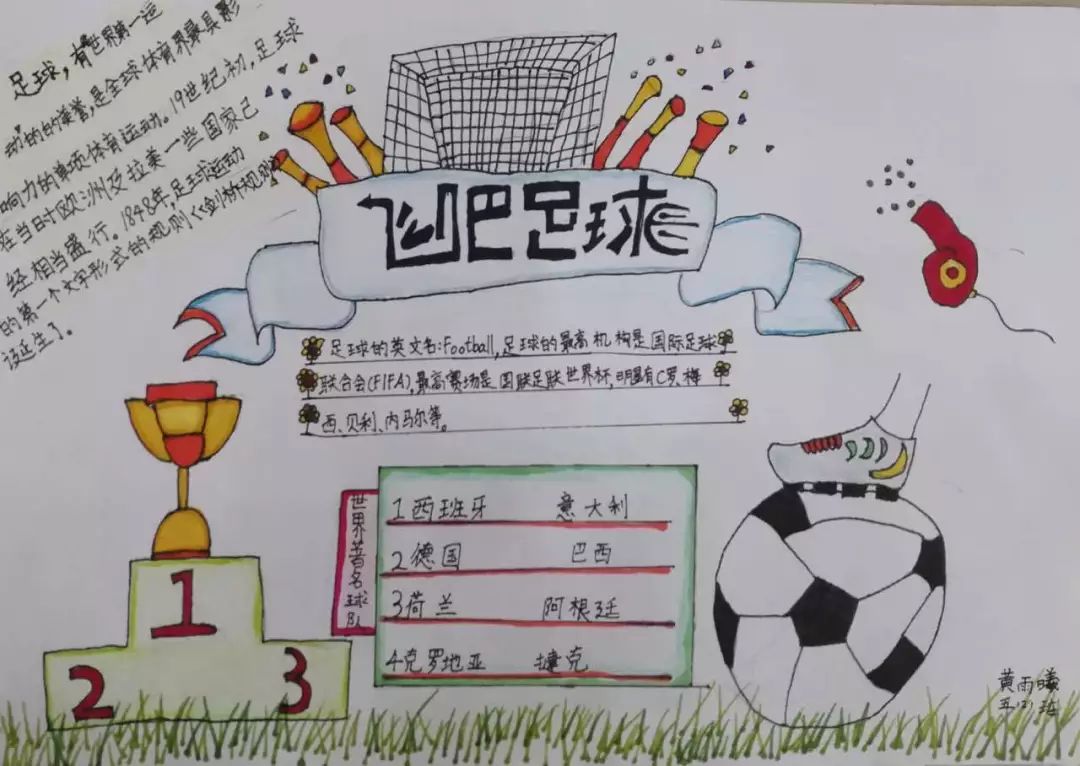 足球，有世界第一运
动的的美誉，是全球体育界最具影
响力的单项体育运动。19世纪初，足球
在当时欧洲及拉美一些国家已
经相当盛行。1848年，足球运动
的第一个文字形式的规则《剑桥规则》
诞生了。
飞吧足球
足球的英文名:Football,足球的最高机构是国际足球
联合会(FIFA),最高赛场是国联足联世界杯,明星有C罗、梅
西、贝利、内马尔等。
世界著名球队
1西班牙 意大利
2德国 巴西
3荷兰 阿根廷
4克罗地亚 捷克
1
2
3
黄雨曦
五(2)班